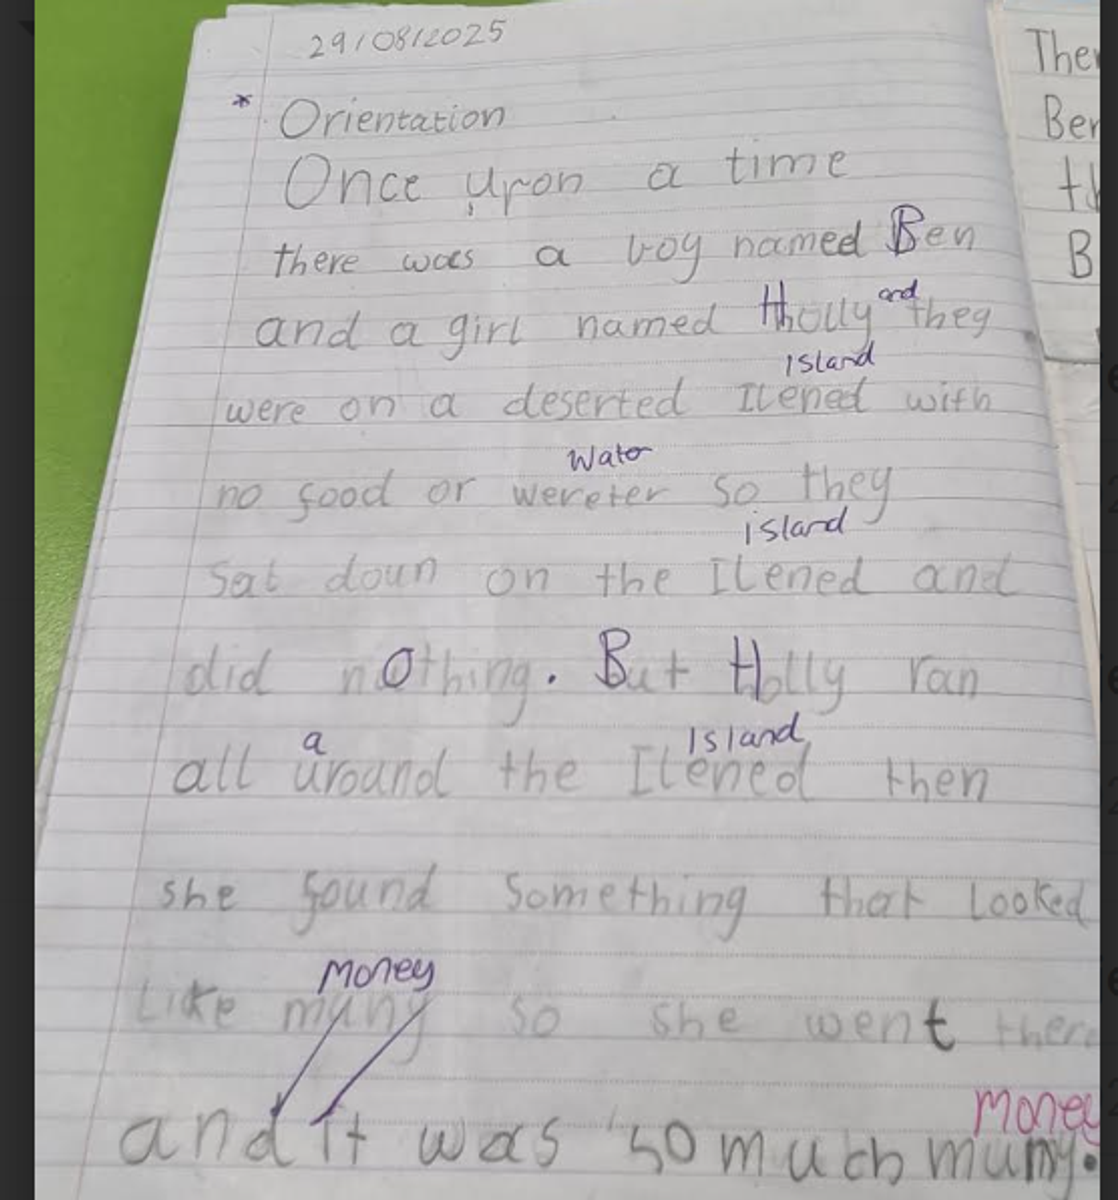 29/08/2025
* Orientation
Once upon a time
there was a boy named Ben
and
and a girl named Hholly they
Island
were on a deserted Ilened with
Water
no food or wereter so they
island
Sat doun on the Ilened and
did nothing. But Holly ran
a Island
all uround the Ilened then
she found Something that looked
Money
Like many so she went there
Money
and it was so much muny.
The
Ben
B